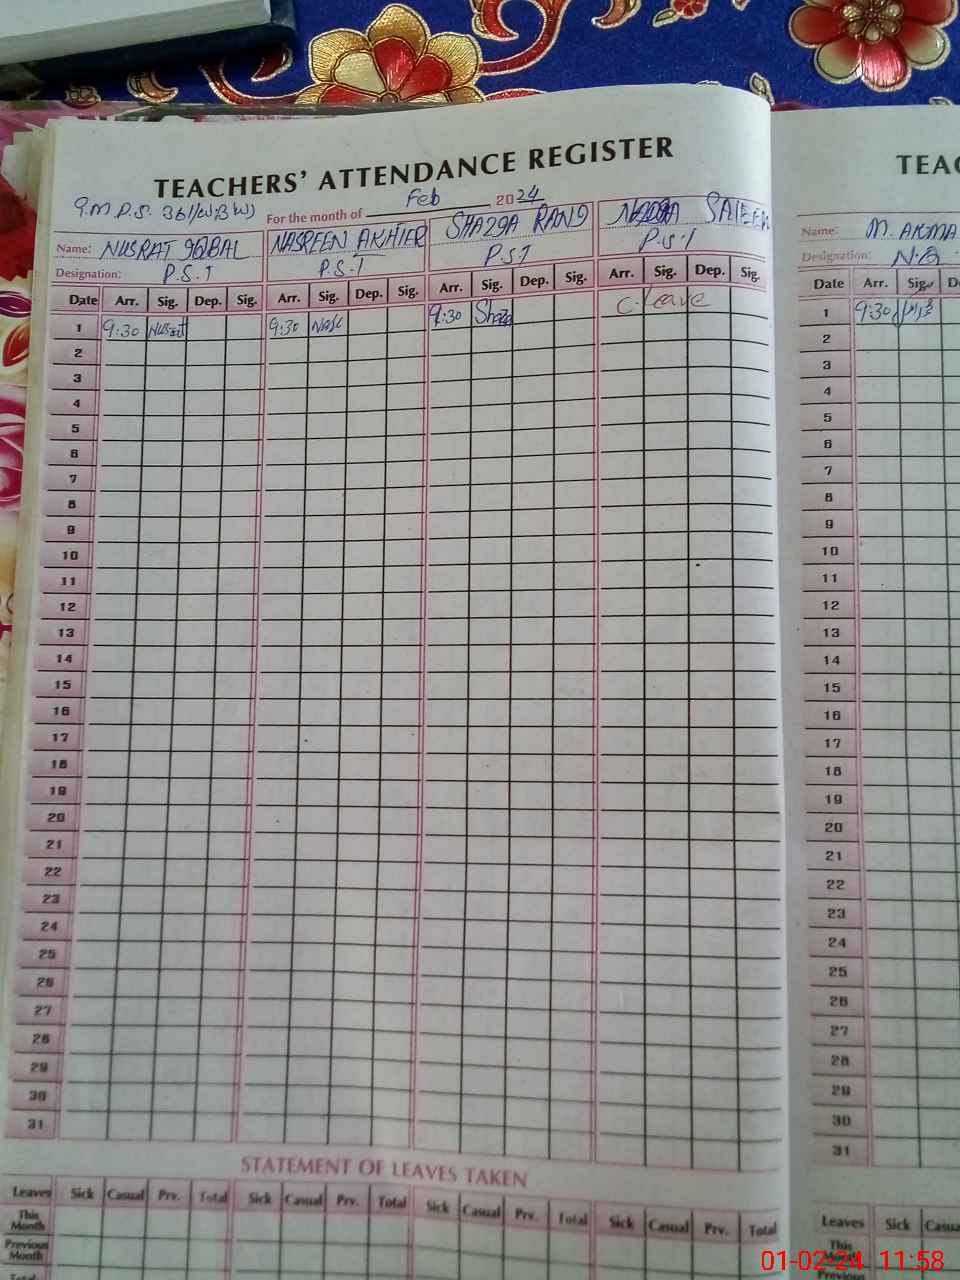 TEACHERS' ATTENDANCE REGISTER
G.M.P.S. 361/WB W)
For the month of Feb 2024
Name: NUSRAT IQBAL NASREEN AKHTER SHAZIA RANI SALEEM
Designation: P.S.T P.S.T P.S.T P.S.T
Date Arr. Sig. Dep. Sig. Arr. Sig. Dep. Sig. Arr. Sig. Dep. Sig. Arr. Sig. Dep. Sig.
1 9:30 Nusrat 9:30 Nas 9:30 Shaz C. Leave
2
3
4
5
6
7
8
9
10
11
12
13
14
15
16
17
18
19
20
21
22
23
24
25
26
27
28
29
30
31
STATEMENT OF LEAVES TAKEN
Leaves Sick Casual Prv. Total Sick Casual Prv. Total Sick Casual Prv. Total Sick Casual Prv. Total
This Month
Previous Month
Total
TEAC
Name: M. AKMA
Designation: N.Q
Date Arr. Sig. D
1 9:30
2
3
4
5
6
7
8
9
10
11
12
13
14
15
16
17
18
19
20
21
22
23
24
25
26
27
28
29
30
31
Leaves Sick Casua
This Month
Previous
01-02-24 11:58